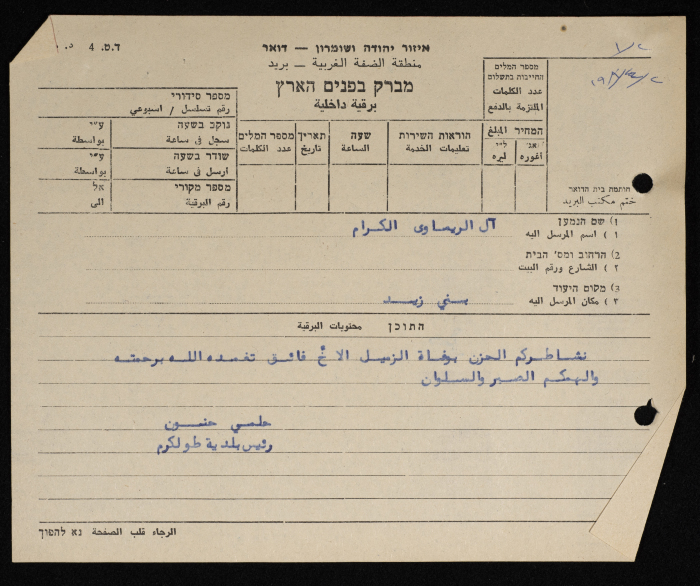 ד.ט. 4
איזור יהודה ושומרון — דואר
منطقة الضفة الغربية — بريد
מברק בפנים הארץ
برقية داخلية
מספר המלים
החייבות בתשלום
عدد الكلمات
الملتزمة بالدفع
המחיר المبلغ
אג' ל"י
أغوره ليره
מספר סידורי
رقم تسلسل / اسبوعي
נוקב בשעה ע"י
سجل في ساعة بواسطة
שודר בשעה ע"י
ارسل في ساعة بواسطة
מספר מקורי אל
رقم البرقية الى
מספר המלים תאריך שעה הוראות השירות
عدد الكلمات تاريخ الساعة تعليمات الخدمة
חותמת בית הדואר
ختم مكتب البريد
1) שם הנמען
١ ) اسم المرسل اليه
آل الريماوي الكرام
2) הרחוב ומס' הבית
٢ ) الشارع ورقم البيت
3) מקום היעוד
٣ ) مكان المرسل اليه
بني زيد
התוכן محتويات البرقية
نشاطركم الحزن بوفاة الزميل الاخ فائق تغمده الله برحمته
والهمكم الصبر والسلوان
حلمي حنون
رئيس بلدية طولكرم
الرجاء قلب الصفحة נא להפוך